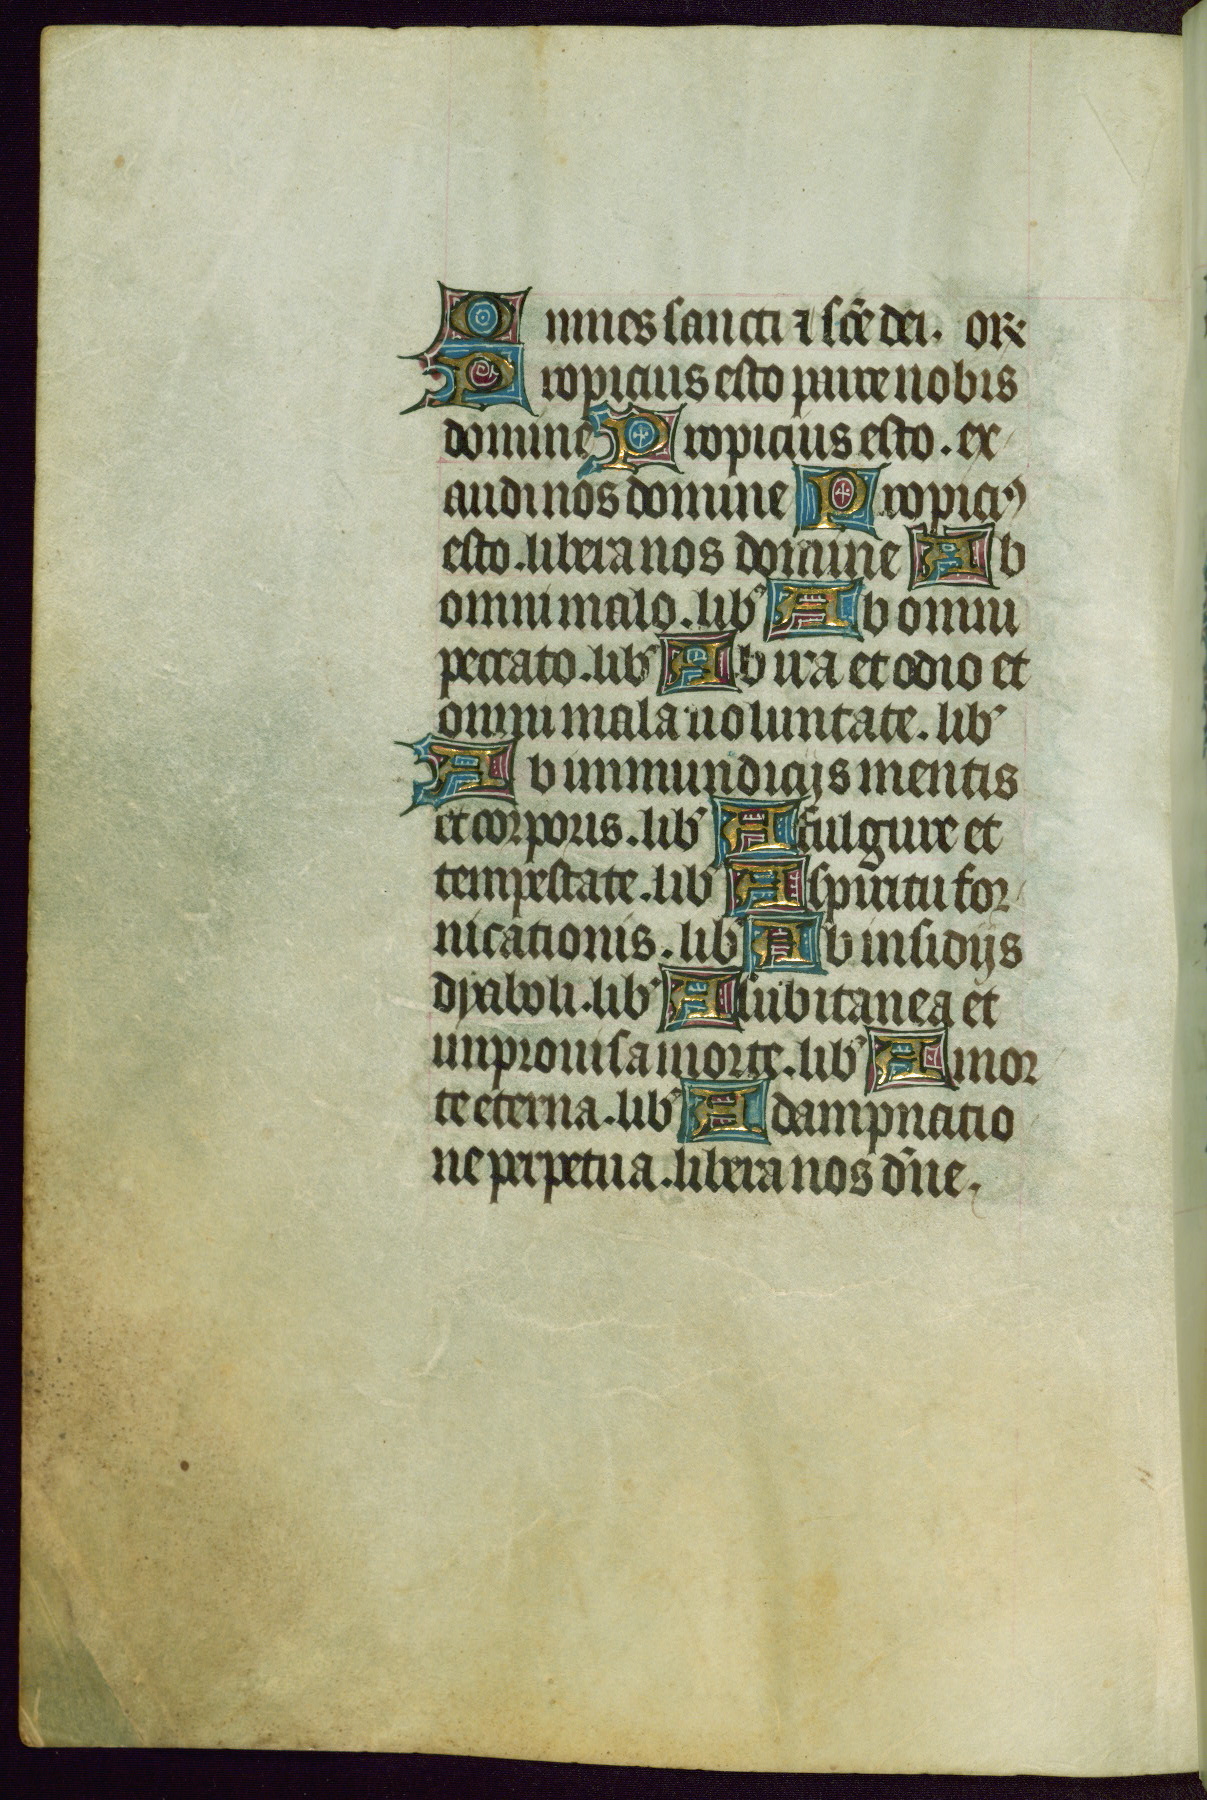 Omnes sancti ⁊ sc̄e dei. or̄
Propicius esto parce nobis
domine Propicius esto. ex
audi nos domine Propiciꝰ
esto. libera nos domine Ab
omni malo. lib' Ab omni
peccato. lib' Ab ira et odio et
omni mala uoluntate. lib'
Ab inmundicijs mentis
et corporis. lib' A fulgure et
tempestate. lib' A spiritu for
nicationis. lib' Ab insidijs
dyaboli. lib' A subitanea et
inprouisa morte. lib' A mor
te eterna. lib' A dampnatio
ne perpetua. libera nos dn̄e.